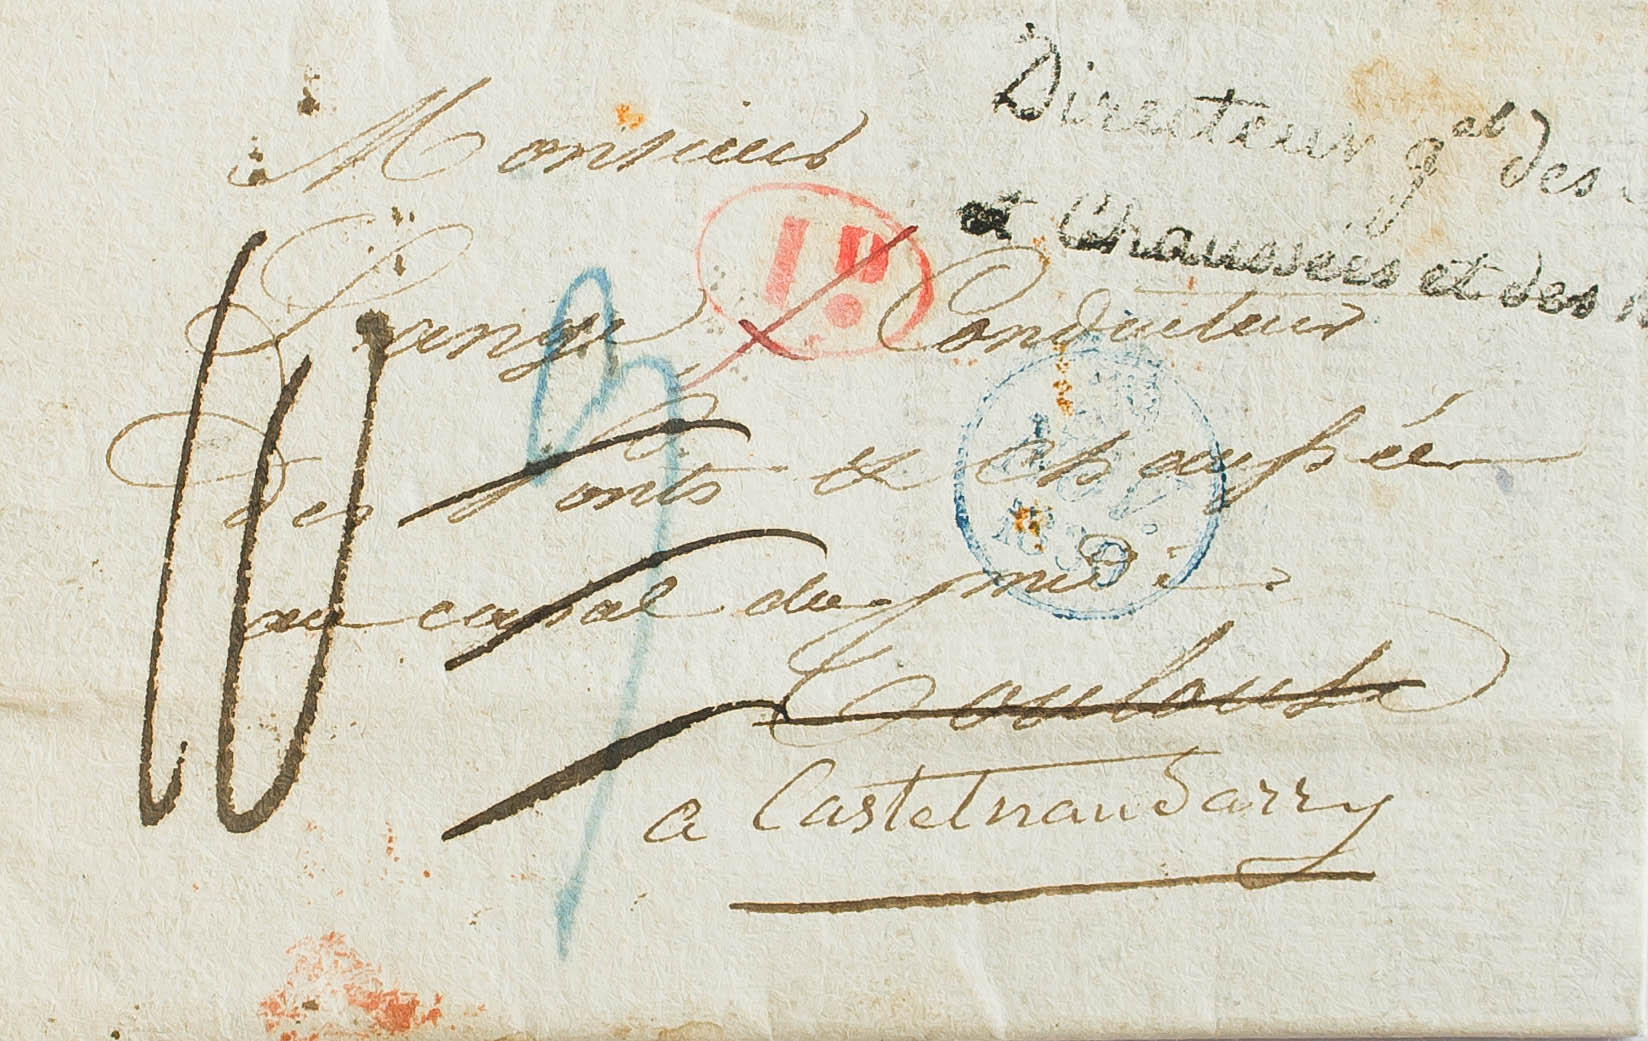 Directeur g^al des
et Chaussées et des
Monsieur
Conducteur
des Ponts & chaussée
au canal du midi
Toulouse
a Castelnaudarry